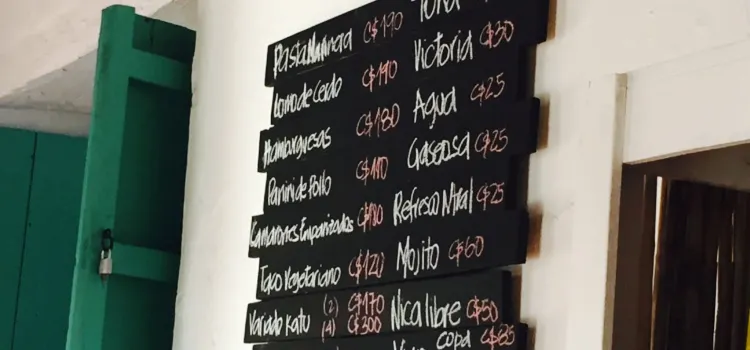 Pasta Marinera C$190
Lomo de Cerdo C$190
Hamburguesas C$180
Panini de Pollo C$110
Camarones Empanizados C$180
Taco Vegetariano C$120
Variado Katu (2) C$170
(4) C$300
Toña
Victoria C$30
Agua C$25
Gaseosa C$25
Refresco Ntral C$25
Mojito C$60
Nica libre C$50
copa C$85